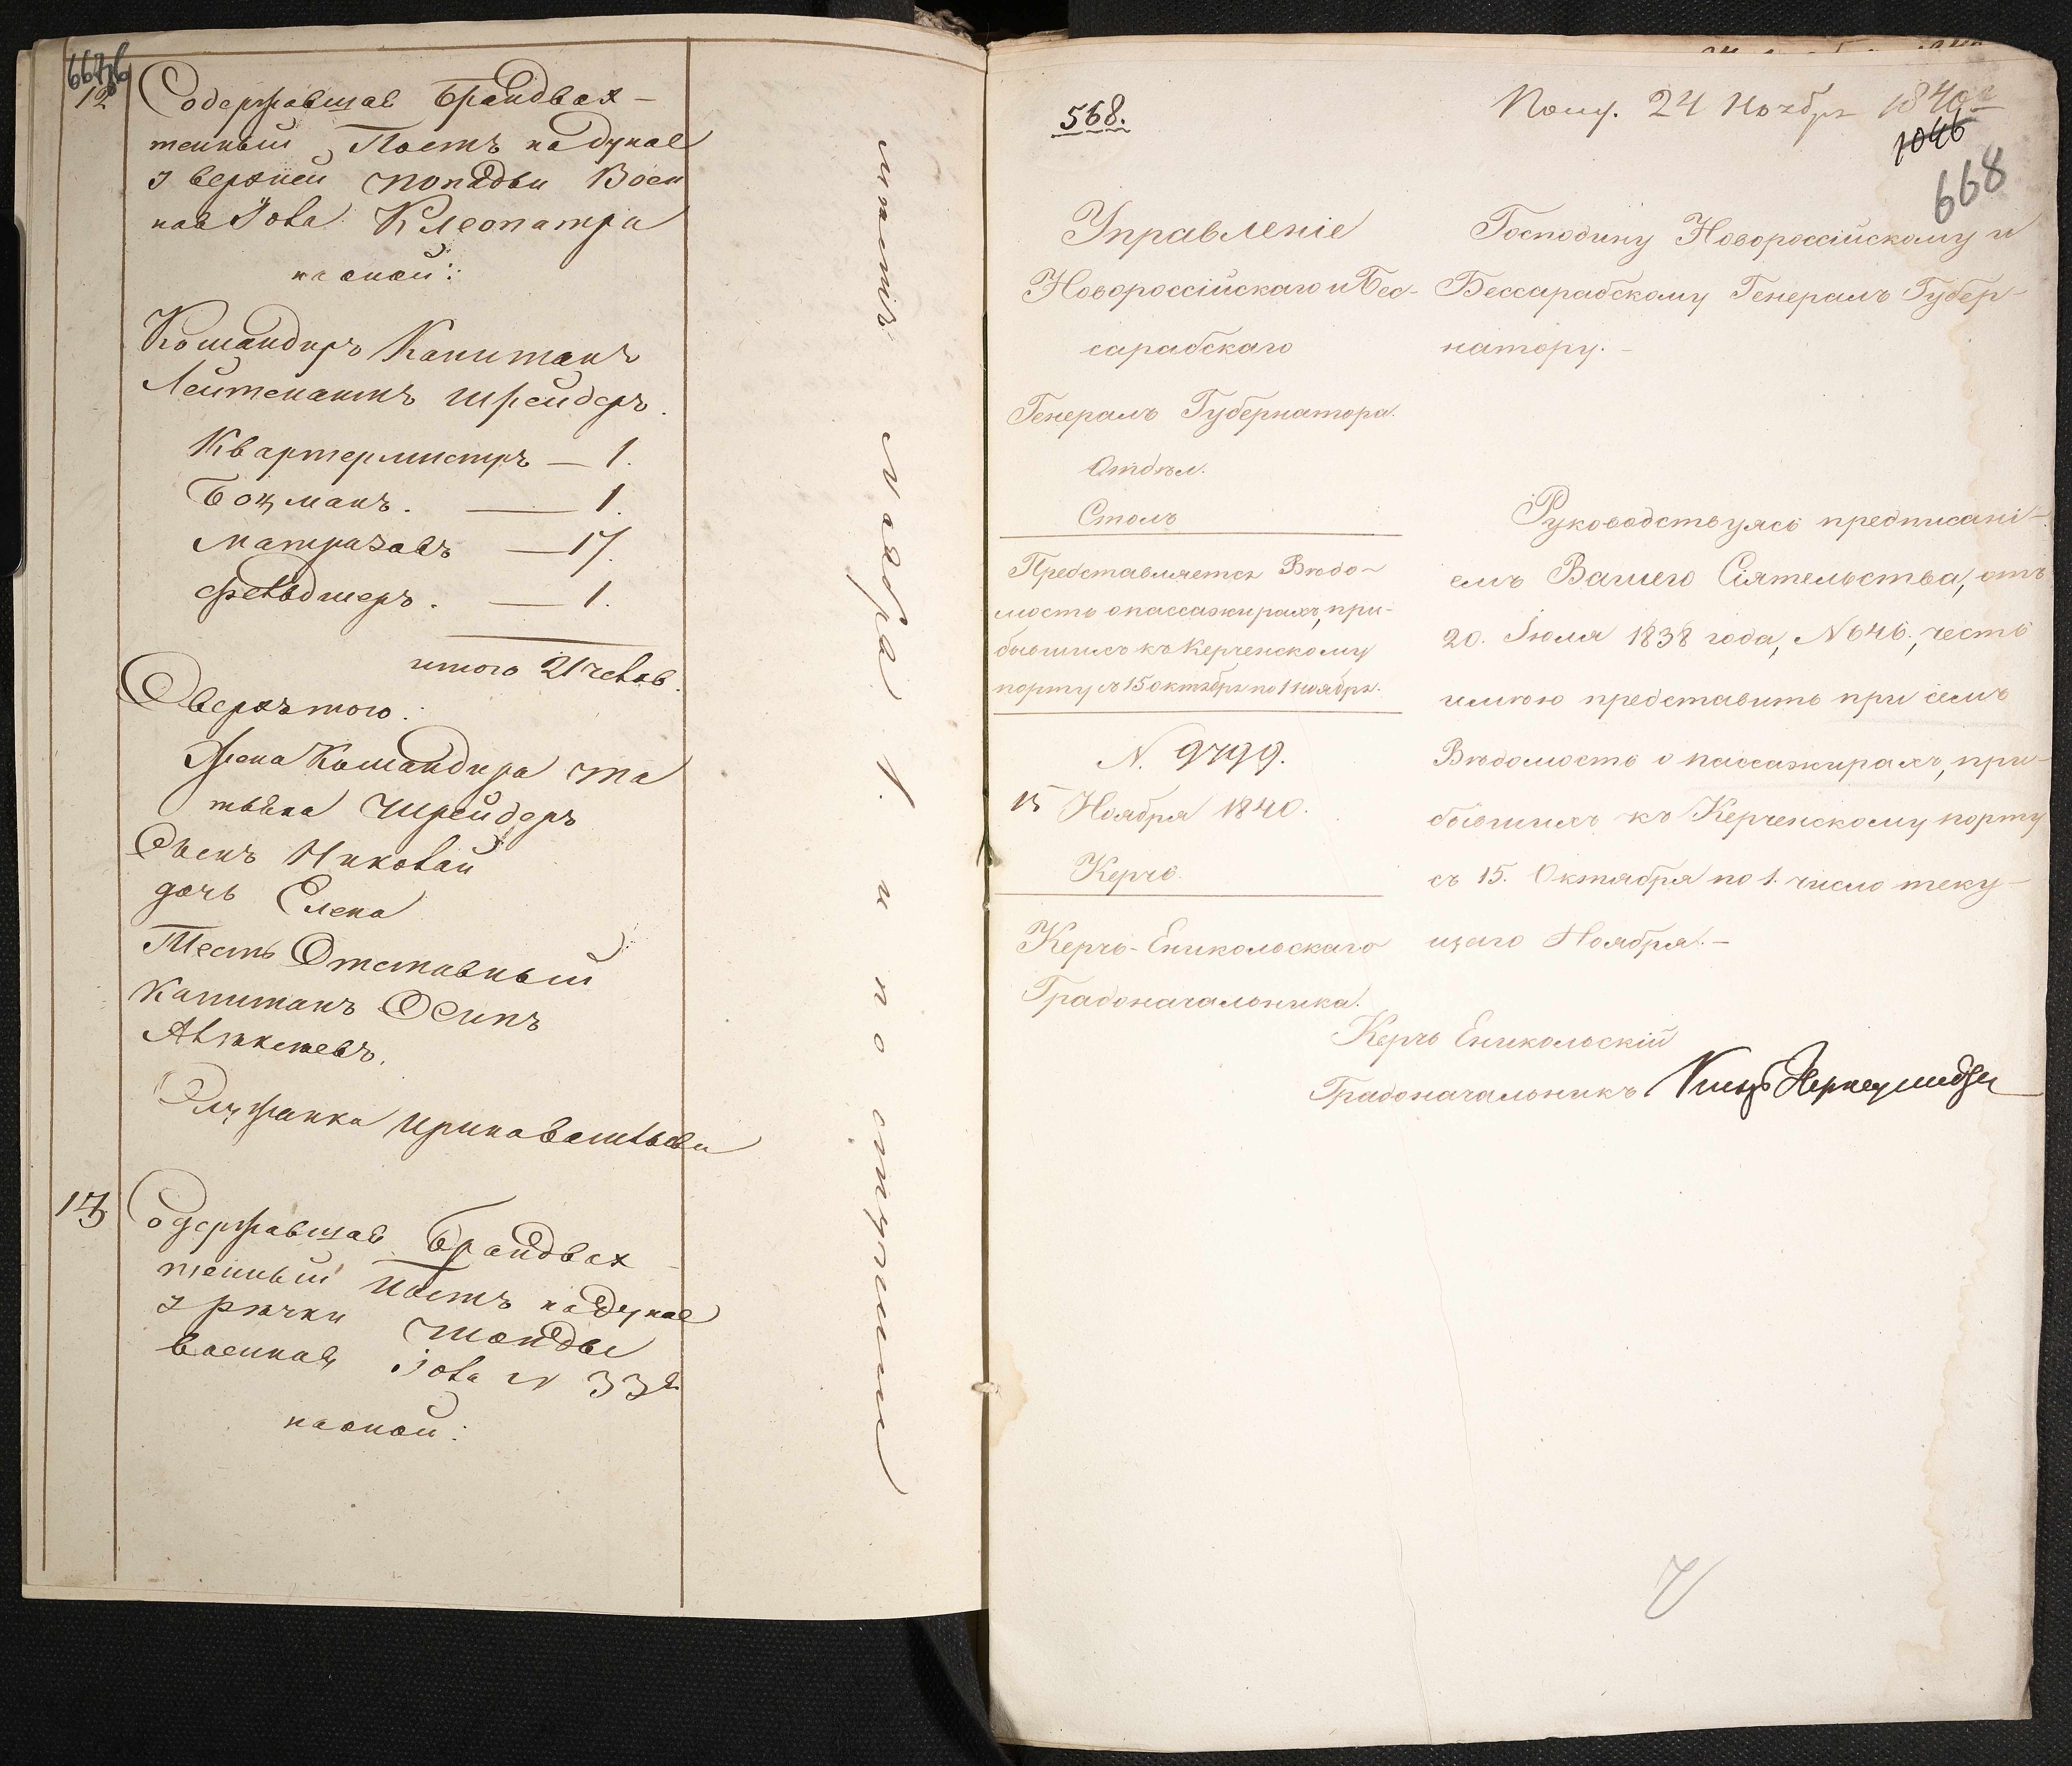 12
Содержавшая Брандвах-
тенный Постъ на дунае
у верхней Попадьи Воен
ная Іола Клеопатра
на оной:
Командиръ Капитанъ
Лейтенантъ Шрейдеръ.
Квартермистръ — 1.
Боцманъ. — 1.
Матразовъ — 17.
фельдшеръ. — 1.
итого 21 челов.
Сверхъ того:
Жена Командира Та
тьяна Шрейдеръ
Сынъ Николай
дочь Елена
Тесть Отставный
Капитанъ Осипъ
Служанка Ирина
13
Содержавшая Брандвах-
тенный Постъ на дунае
у речки
военная Іола № 33й
на оной:
ноября 1. и по
568.
Полу. 24 Ноября 1840го
1046
668
Управленіе
Новороссійскаго и Бес-
сарабскаго
Генералъ Губернатора.
Отдѣл.
Столъ
Представляется Вѣдо-
мость о пассажирахъ, при-
бывшихъ къ Керченскому
порту съ 15 октября по 1 ноября.
N. 9799.
15 Ноября 1840.
Керчь.
Керчь-Еникольскаго
Градоначальника.
Господину Новороссійскому и
Бессарабскому Генералъ Губер-
натору.-
Руководствуясь предписані-
емъ Вашего Сіятельства, отъ
20. Іюля 1838 года, N 646., честь
имѣю представить при семъ
Вѣдомость о пассажирахъ, при-
бывшихъ къ Керченскому порту
съ 15. Октября по 1. число теку-
щаго Ноября.-
Керчь Еникольскій
Градоначальникъ Князь Херхеулидзе